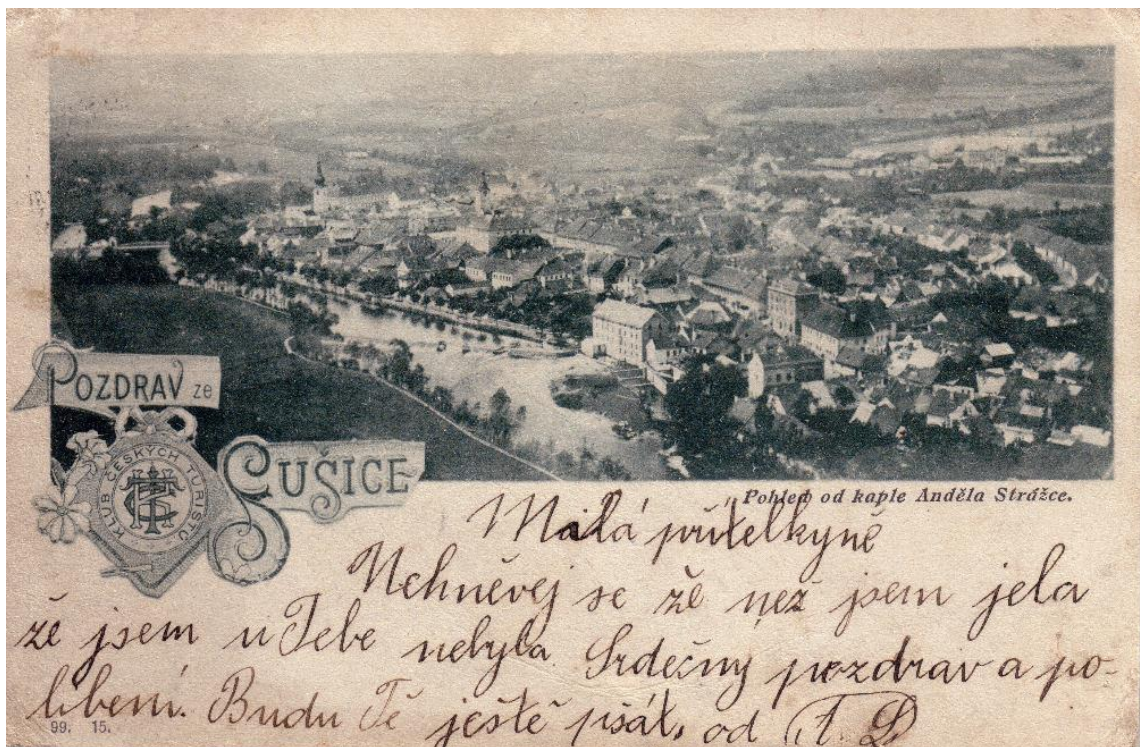 POZDRAV ze
SUŠICE
KLUB ČESKÝCH TURISTŮ
KČT
Pohled od kaple Anděla Strážce.
Milá přítelkyně
Nehněvej se že než jsem jela
že jsem u Tebe nebyla. Srdečný pozdrav a po-
líbení. Budu Tě ještě psát, od A. D
99. 15.